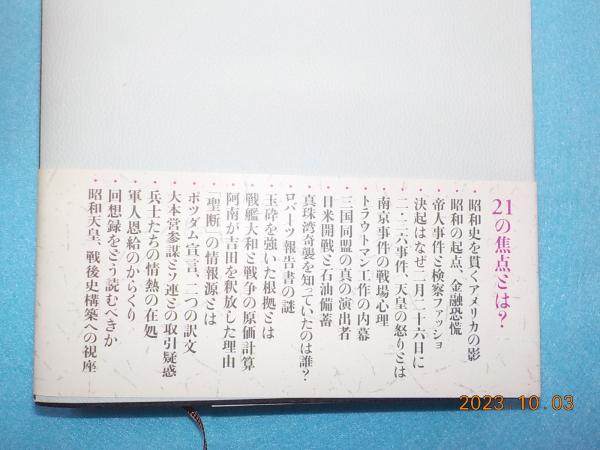 21の焦点とは?
・昭和史を貫くアメリカの影
・昭和の起点、金融恐慌
・帝人事件と検察ファッショ
・決起はなぜ二月二十六日に
・二・二六事件、天皇の怒りとは
・南京事件の戦場心理
・トラウトマン工作の内幕
・三国同盟の真の演出者
・日米開戦と石油備蓄
・真珠湾奇襲を知っていたのは誰?
・ロバーツ報告書の謎
・玉砕を強いた根拠とは
・戦艦大和と戦争の原価計算
・阿南が吉田を釈放した理由
・「聖断」の情報源とは
・ポツダム宣言、二つの訳文
・大本営参謀とソ連との取引疑惑
・兵士たちの情熱の在処
・軍人恩給のからくり
・回想録をどう読むべきか
・昭和天皇、戦後史構築への視座
2023.10.03